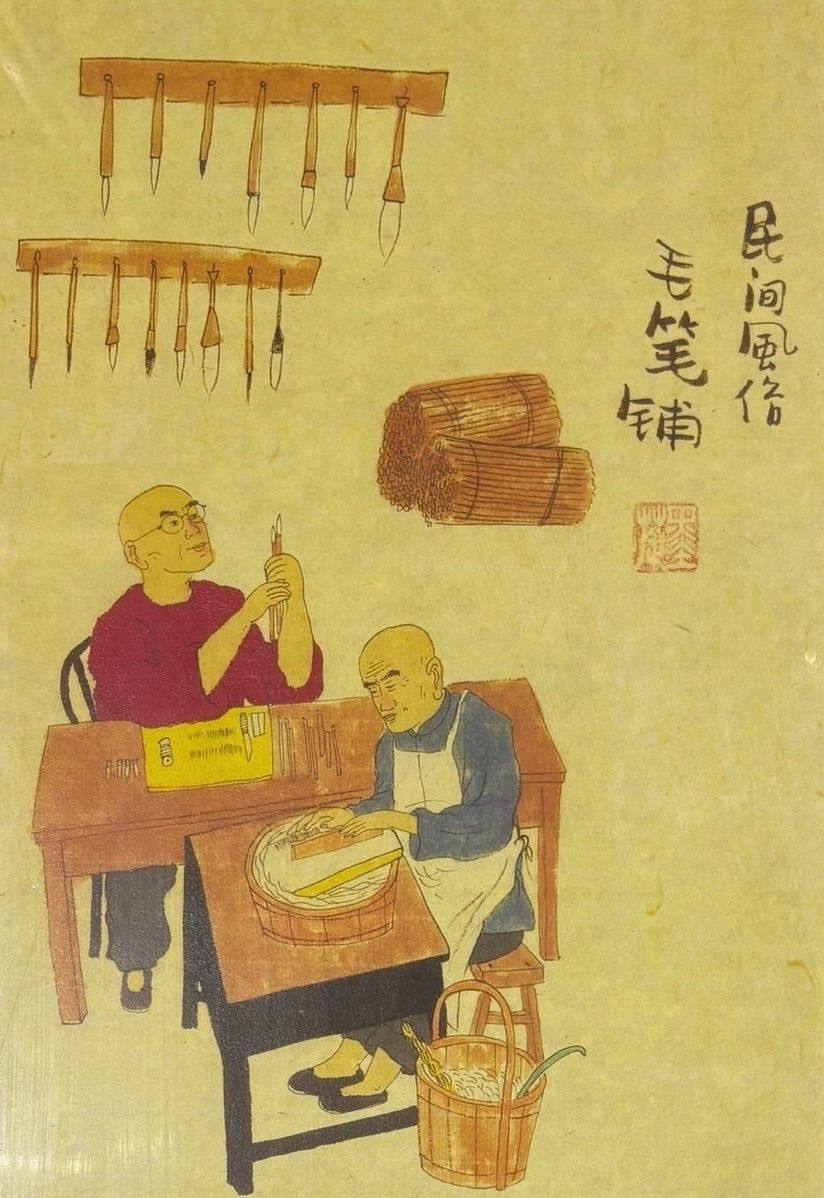 民间風俗
毛笔铺